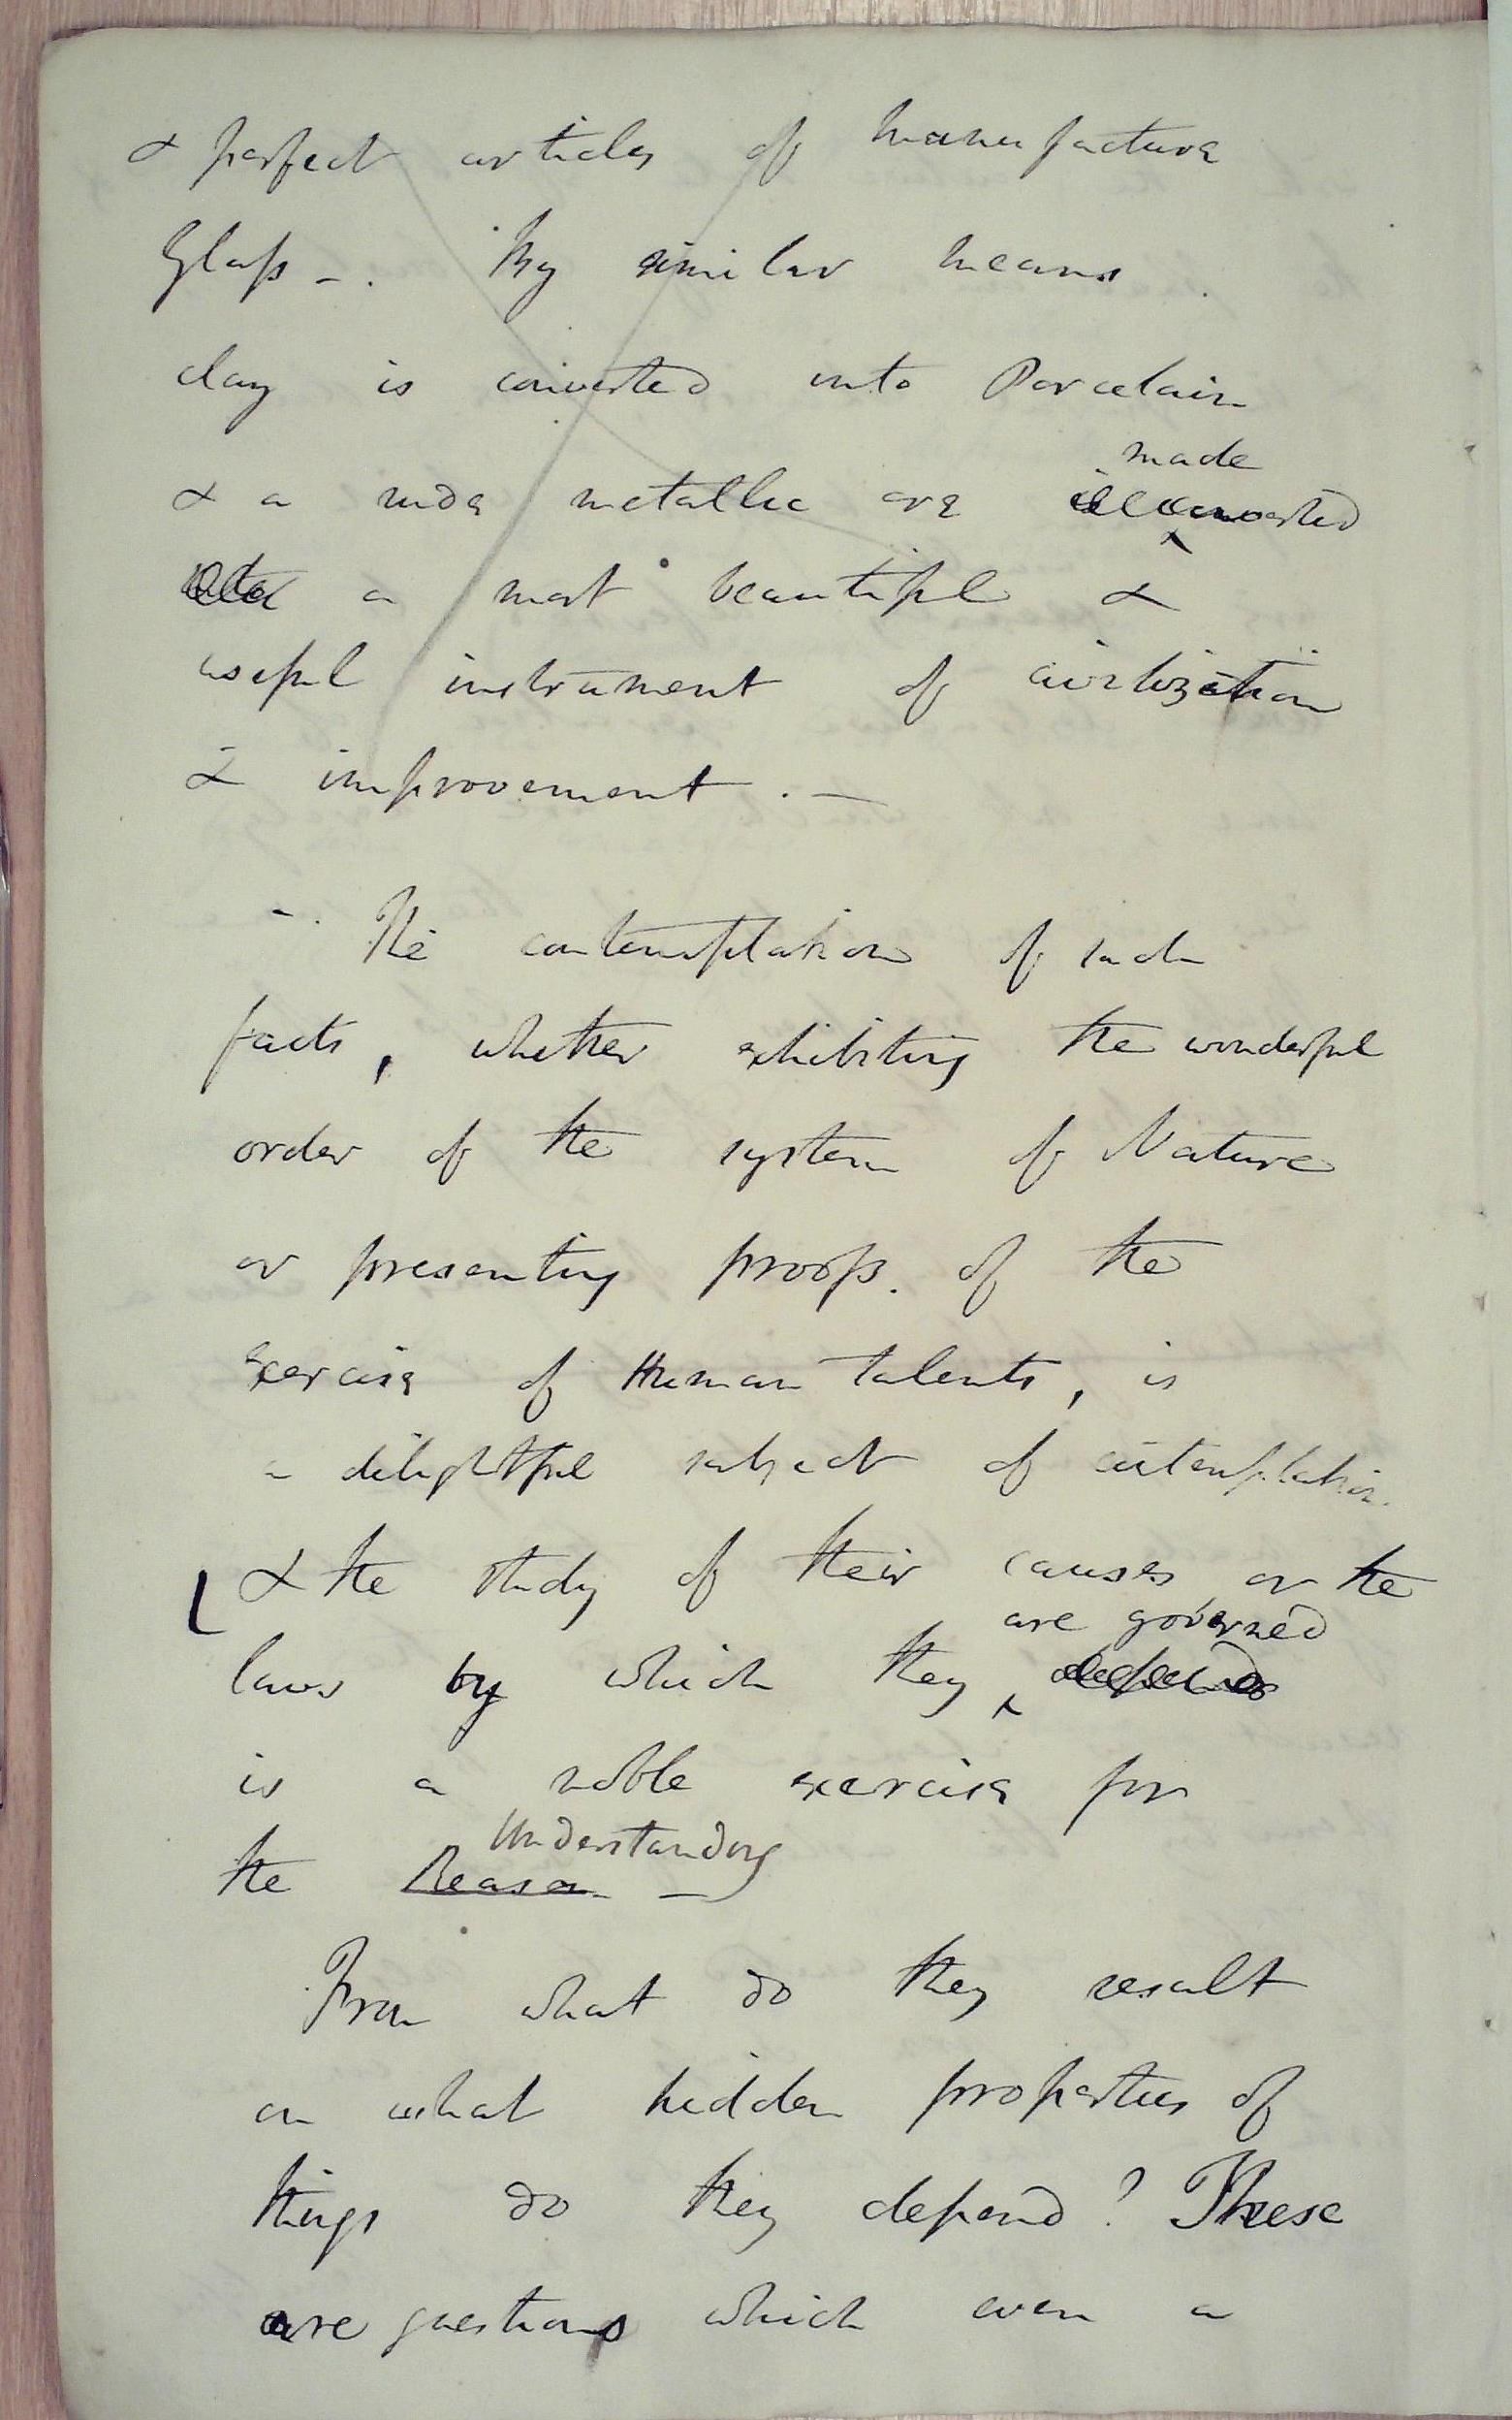 & perfect articles of manufacture
Glass -. By similar means
clay is converted into Porcelain
made
& a rude metallic ore is converted
into a most beautiful &
useful instrument of civilization
& improvement. —
- The contemplation of such
facts, whether exhibiting the wonderful
order of the system of Nature
or presenting proofs. of the
exercise of Human talents, is
a delightful subject of contemplation.
& the study of their causes or the
are governed
laws by which they depends
is a noble exercise for
Understanding
the Reason —
From what do they result
on what hidden properties of
things do they depend? These
are questions which even a